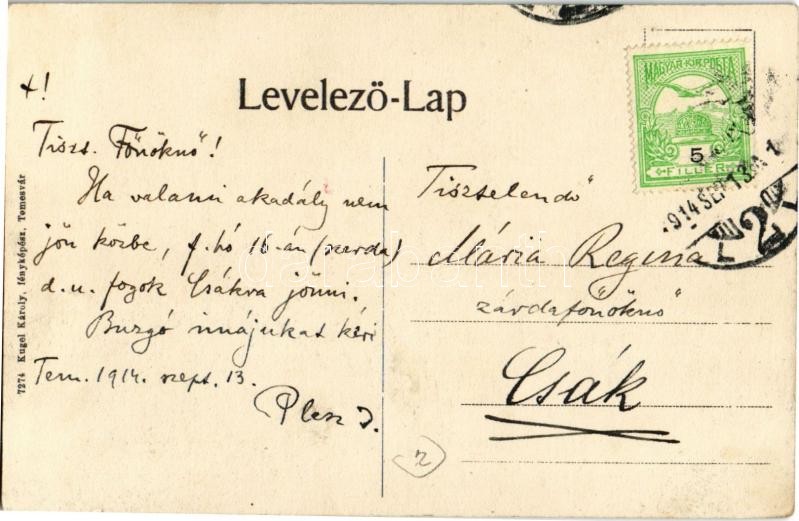 Levelező-Lap
+!
Tiszt. Főnöknő!
Ha valami akadály nem
jön közbe, f. hó 16-án (szerda)
d.u. fogok Csákra jönni.
Buzgó imájukat kéri
Tem. 1914. szept. 13.
Plesz J.
7274 Kugel Károly, fényképész, Temesvár
MAGYAR KIR. POSTA
5
FILLÉR
914 SEP 13
Tisztelendő
Mária Regina
zárdafőnöknő
Csák
2
darabanth